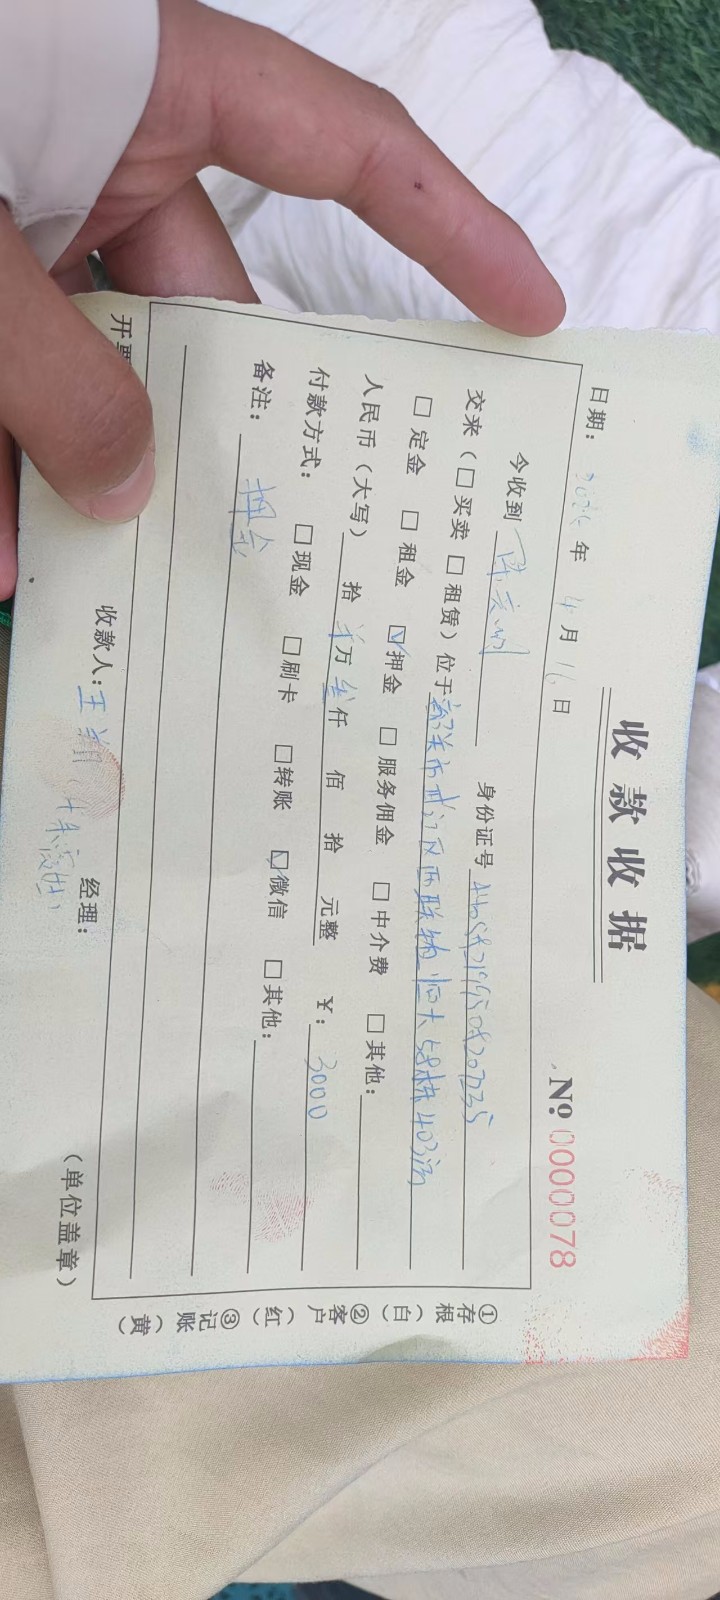 收款收据
№ 0000078
日期： 年 4 月 16 日
今收到 身份证号
交来（□买卖 □租赁）位于 韶关市武江区西联镇恒大 58栋403房
□定金 □租金 ☑押金 □服务佣金 □中介费 □其他：
人民币（大写） 拾 万 叁仟 佰 拾 元整 ￥：3000
付款方式： □现金 □刷卡 □转账 ☑微信 □其他：
备注： 押金
收款人：王 经理： （单位盖章）
①存根（白）②客户（红）③记账（黄）